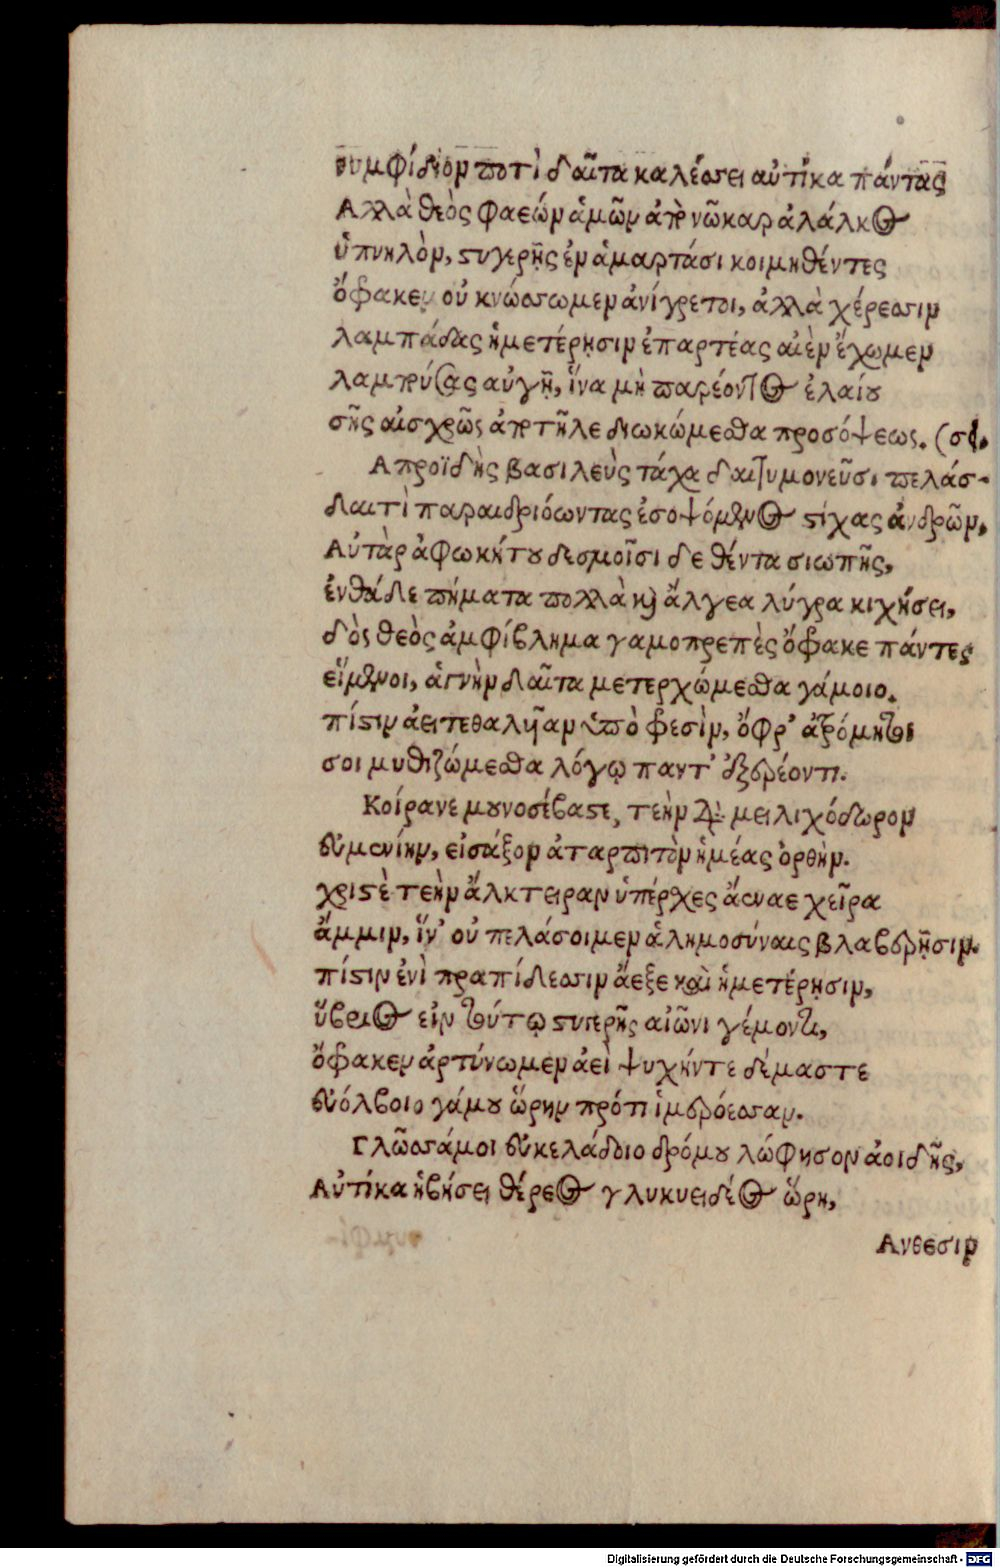 νυμφίδιον ποτὶ δαῖτα καλέσσει αὐτίκα πάντας
Αλλὰ θεὸς φαεών ἁμῶν ἀπὸ νῶκαρ ἀλάλκοις
ὑπνηλὸν, στυγερῇς ἐν ἁμαρτάσι κοιμηθέντες
ὄφρακεν οὐ κνώσσωμεν ἀνίγρετοι, ἀλλὰ χέρεσσιν
λαμπάδας ἡμετέρῃσιν ἐπαρτέας αἰὲν ἔχωμεν
λαμπρύσας αὐγῇ, ἵνα μὴ παρέοντος ἐλαίου
σῆς αἰσχρῶς ἀπὸ τῆλε διωκώμεσθα προσόψεως. (σει,
Απροϊδὴς βασιλεὺς τάχα δαιτυμονεῦσι πελάσ-
δαιτὶ παραιδριόωντας ἐσοψόμενος στίχας ἀνδρῶν,
Αὐτὰρ ἀφωνήτου δεσμοῖσι δεθέντα σιωπῆς,
ἐνθάδε πήματα πολλὰ καὶ ἄλγεα λύγρα κιχήσει,
δὸς θεὸς ἀμφίβλημα γαμοπρεπὲς ὄφρακε πάντες
εἵμενοι, ἁγνὴν δαῖτα μετερχώμεσθα γάμοιο.
πίστιν ἀειτεθαλῆαν ὑπὸ φρεσὶν, ὄφρ'
σοι μυθιζώμεσθα λόγῳ παντ'
Κοίρανε μουνοσέβαστε, τεὴν διὰ μειλιχόδωρον
εὐμενίην, εἰσάξον ἀταρπιτὸν ἡμέας ὀρθήν.
χριστὲ τεὴν ἄλκτειραν ὑπέρχες ἄσναε χεῖρα
ἄμμιν, ἵν' οὐ πελάσοιμεν ἀλημοσύναις βλαβερῇσιν.
πίστιν ἐνὶ πραπίδεσσιν ἄεξε καὶ ἡμετέρῃσιν,
ὕβριος εἰν τούτῳ στυγερῆς αἰῶνι γέμοντι,
ὄφρακεν ἀρτύνωμεν ἀεὶ ψυχήντε δέμαστε
εὐόλβοιο γάμου ὥρην πρότι ἱμερόεσσαν.
Γλῶσσάμοι εὐκελάδοιο δρόμου λώφησον ἀοιδῆς,
Αὐτίκα ἡβήσει θέρεος γλυκυειδέος ὥρη,
Ανθεσιν